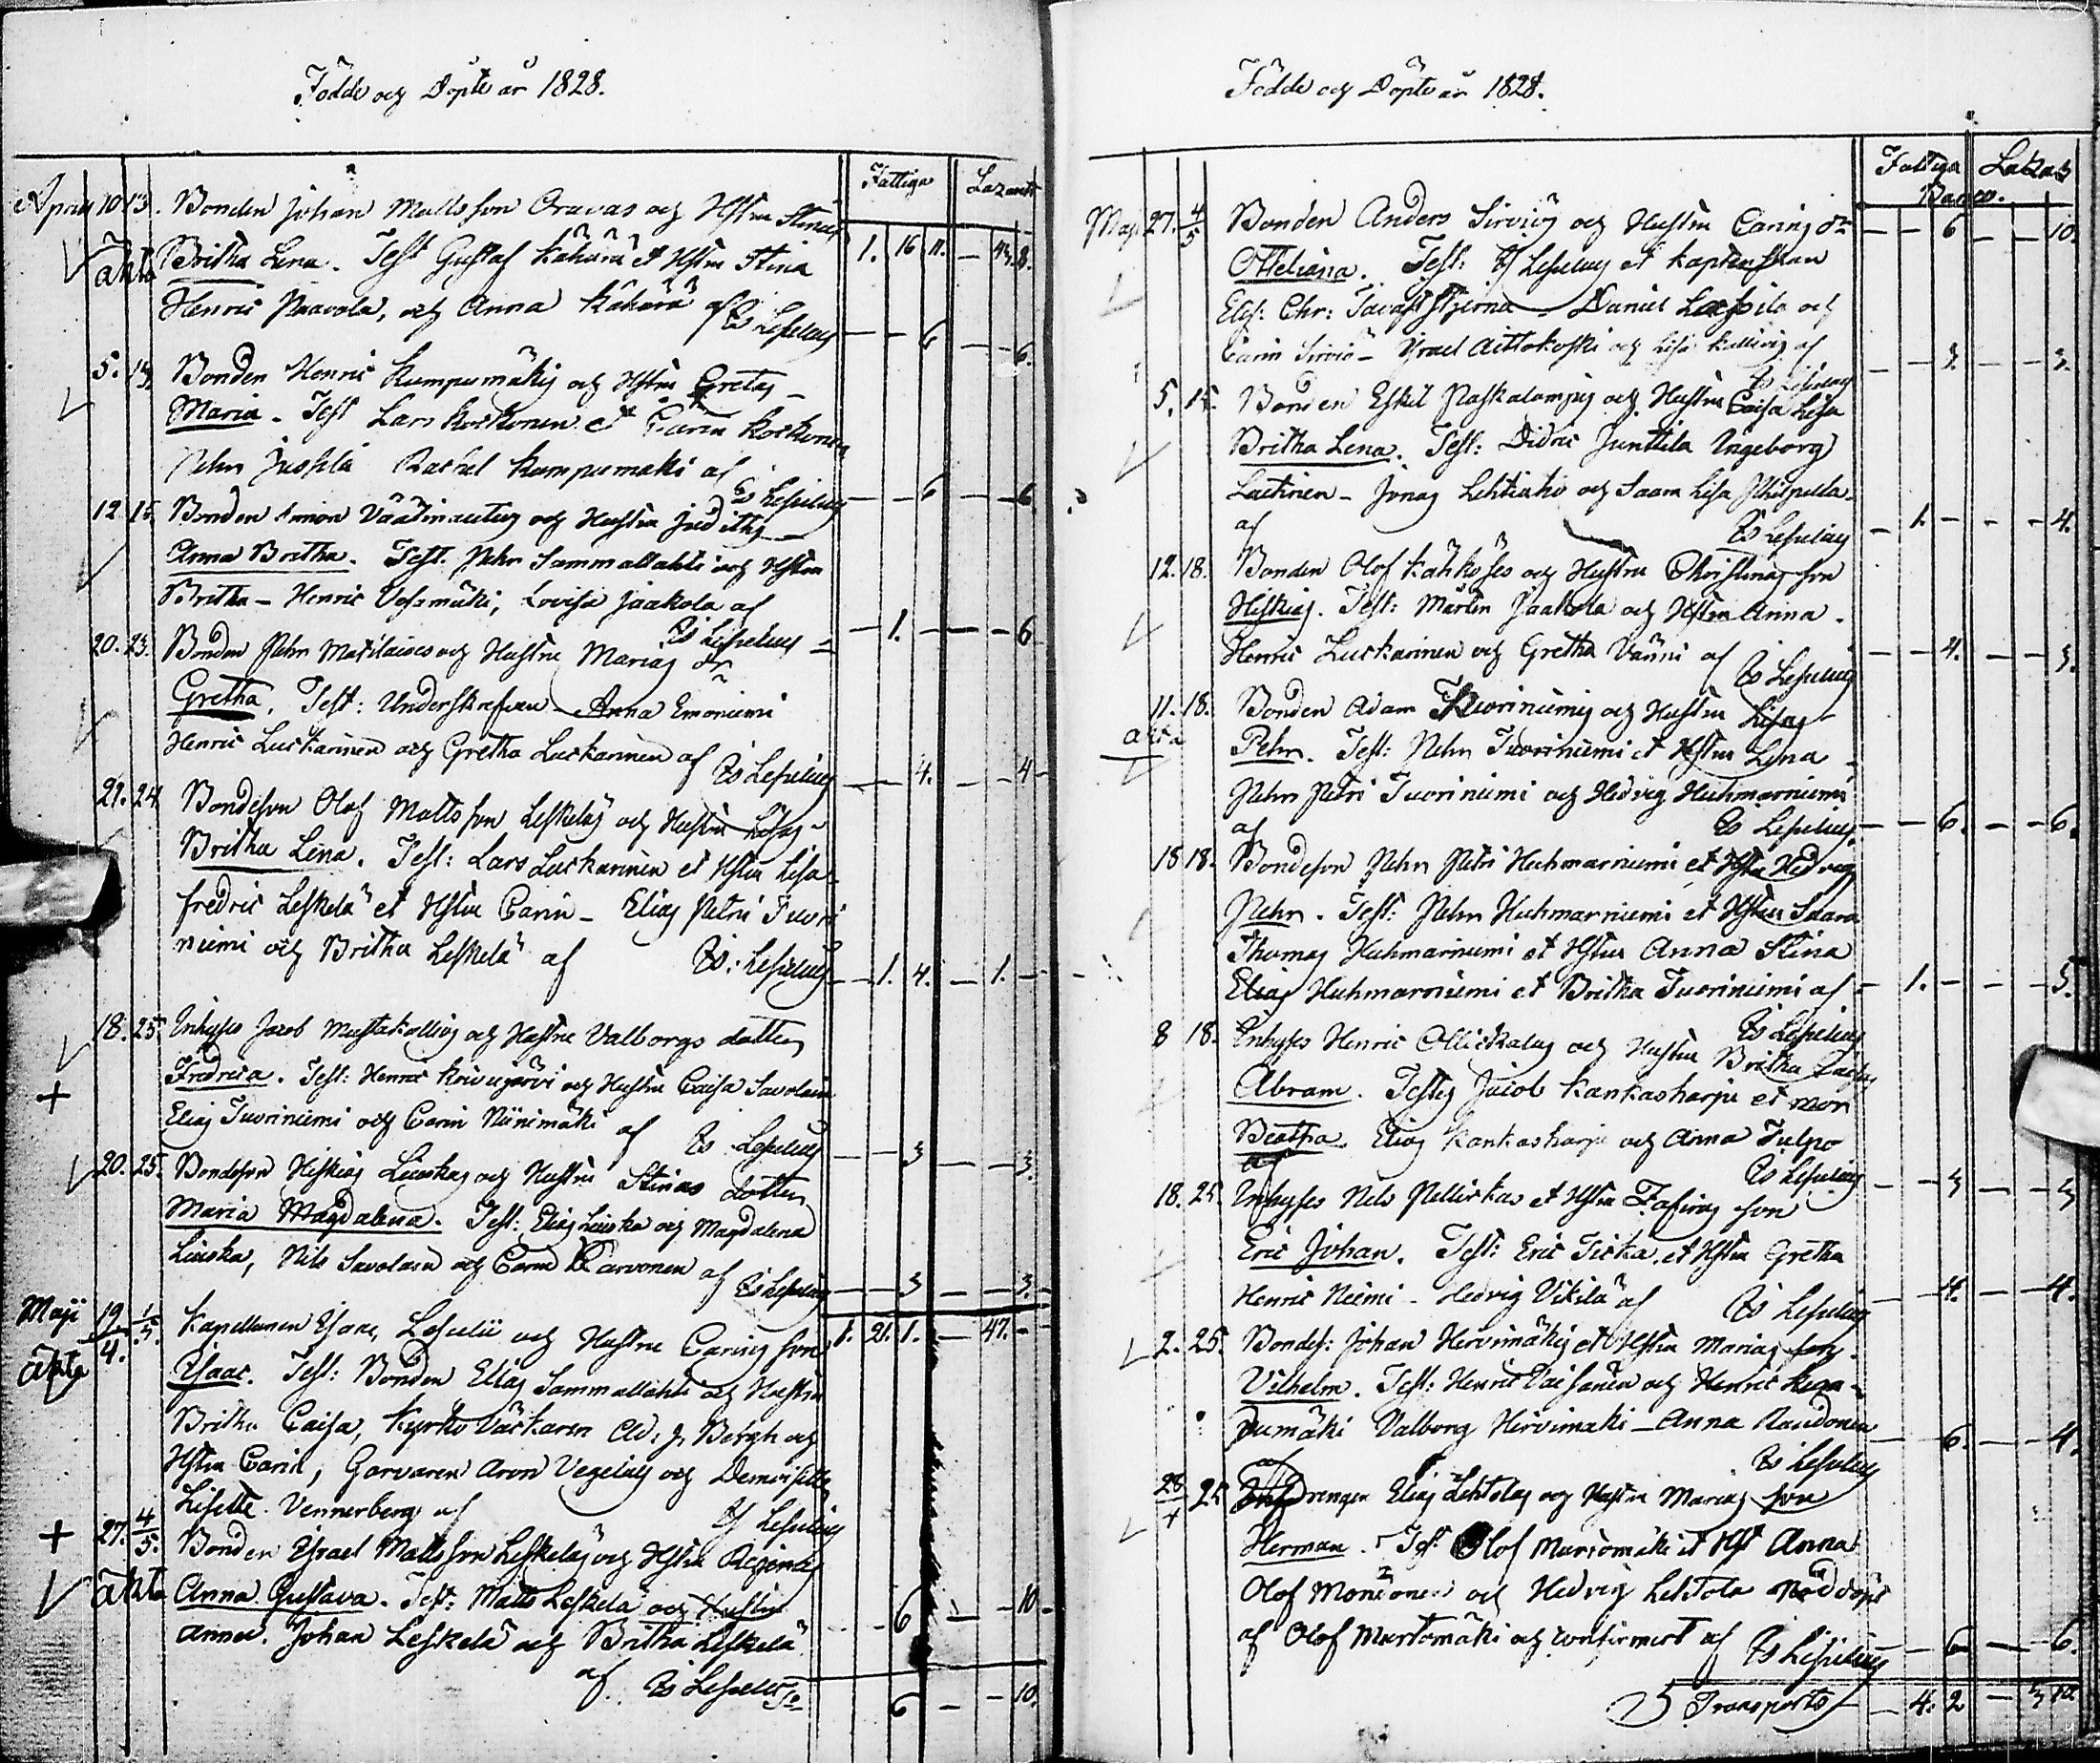 Födde och Döpte år 1828.
Fattiga Lazarett
April 10 13. Bonden Johan Mattsson Oravas och Hstru Stinas
ähta Britha Lena. Test Gustaf Kähärä et Hstru Stina 1. 16 11. – 43. 8.
Henric Paavola, och Anna Kähärä af
Is Lescelius – – 6 – – 6.
5. 13. Bonden Henric Kumpumäkis och Hstru Gretas –
Maria – Test Lars Koskonen et Carin Koskonen
Pehr Jussila Rachel Kumpumäki af
Is Lescelius – – 6 – – 6
12. 15. Bonden Simon Väätänens och Hustru Judiths –
Anna Britha. Test. Pehr Sammallahti och Hstru
Britha – Henric , Lovisa Jaakola af
Is Lescelius – 1. – – – 6
20. 23. Bonden Pehr Matilaises och Hustru Marias dr
Gretha. Test: Underskrefven – Anna Emoniemi
Henric Luckarinen och Gretha Luckarinen af Is Lescelius – – 4. – – 4 –
21. 24 Bondeson Olof Mattsson Leskeläs och Hustru Lisas –
Britha Lena. Test: Lars Luckarinen et Hstru Lisa
Fredric Leskelä et Hstru Carin – Elias Petri Tuori
niemi och Britha Leskelä af Is: Lescelius – 1. 4. – 1. –
18. 25. Inhyses Jacob Mustakallios och Hustru Valborgs dotter
Fredrica. Test: Henric Kivijärvi och Hustru Caisa Savolain
Elias Tuoriniemi och Carin Niinimäki af Is Lescelius – – 3 – – 3.
20. 25. Bondeson Hiskias Liuskas och Hustru Stinas dotter
Maria Magdalena. Test: Elias Liuska och Magdalena
Liuska, Nils Savolain och Carin Karvonen af Is Lescelius – – 3 – – 3.
Maji 19/4. 1/5. Kapellanen Isaac Lescelii och Hustru Carins son 1. 21. 1. – 47. –
ähta Isaac. Test: Bonden Elias Sammallahti och Hustru
Britha Caisa, Kyrko Väckaren Ad: J. Bergh och
Hstru Carin, Garvaren Aron Vegelius och Demoiselle
Lisette Vennerberg af Is Lescelius
27. 4/5. Bonden Israel Mattsson Leskeläs och Hstru Reginas
ähta Anna Gustava. Test: Matts Leskelä och Hustru
Anna. Johan Leskelä och Britha Leskelä – 6 – – 10 –
af Is Lescelius
6 – – 10.
Födde och Döpte år 1828.
Fattiga Lazar
Maji 27. 4/5 Bonden Anders Sirviös och Hustru Carins dr – – 6 – – 10.
Otteliana. Test: Is Lescelius et Kaptenskan
Elis: Chr: Tavaststjerna – Daniel Lassila och
Carin Sirviö – Israel Aittokoski och Lisa Kallio af
Is Lescelius – 3. – – 3.
5. 15. Bonden Eskil Paskalampis och Hustru Caisa Lisa
Britha Lena. Test: Didric Junttila Ingeborg
Laitinen – Jonas Lehtiaho och Saara Lisa
af Is Lescelius – 1. – – – 4.
12. 18. Bonden Olof Kähköses och Hustru Christinas son
Hiskias. Test: Mårten Jaakola och Hstru Anna.
Henric Luckarinen och Gretha Vänni af Is Lescelius – – 4. – – 3.
11. 18. Bonden Adam Tuoriniemis och Hustru Lisas
ahta Pehr. Test: Pehr Tuoriniemi et Hstru Lena
Pehr Petri Tuoriniemi och Hedvig Huhmarniemi
af Is Lescelius – – 6. – – 6.
15 18. Bondeson Pehr Petri Huhmarniemi et Hstru Hedvigs
Pehr. Test: Pehr Huhmarniemi et Hstru Saara
Thomas Huhmarniemi et Hstru Anna Stina
Elias Huhmarniemi et Britha Tuoriniemi af – 1. – – – 5.
Is Lescelius
8 18. Inhyses Henric Ollickalas och Hustru Britha Caisas
Abram. Testes Jacob Kankaharju et mor
Beatha. Elias Kankaharju och Anna Tulpo
af Is Lescelius – – 3 – – 3
18. 25. Inhyses Nils Pellickas et Hstru Zafiras son
Eric Johan. Test: Eric Ticka et Hstru Gretha
Henric Niemi – Hedvig Vikilä af Is Lescelius – – 4. – – 4.
2. 25. Bondes: Johan Hirvimäkis et Hstru Marias son.
Vilhelm. Test: Henric Väisänen och Henric Kum
pumäki Valborg Hirvimäki – Anna Raudonen
af Is Lescelius – – 6. – – 4.
28/4 25 Drengen Elias Lehtolas och Hustru Marias son
Herman. Test Olof Murtomäki et Hst Anna
Olof Montonen och Hedvig Lehtola Nöddöpt
af Olof Murtomäki och confirmert af Is Lescelius – – 6 – – 6.
Transports – 4. 2 – 3 10.